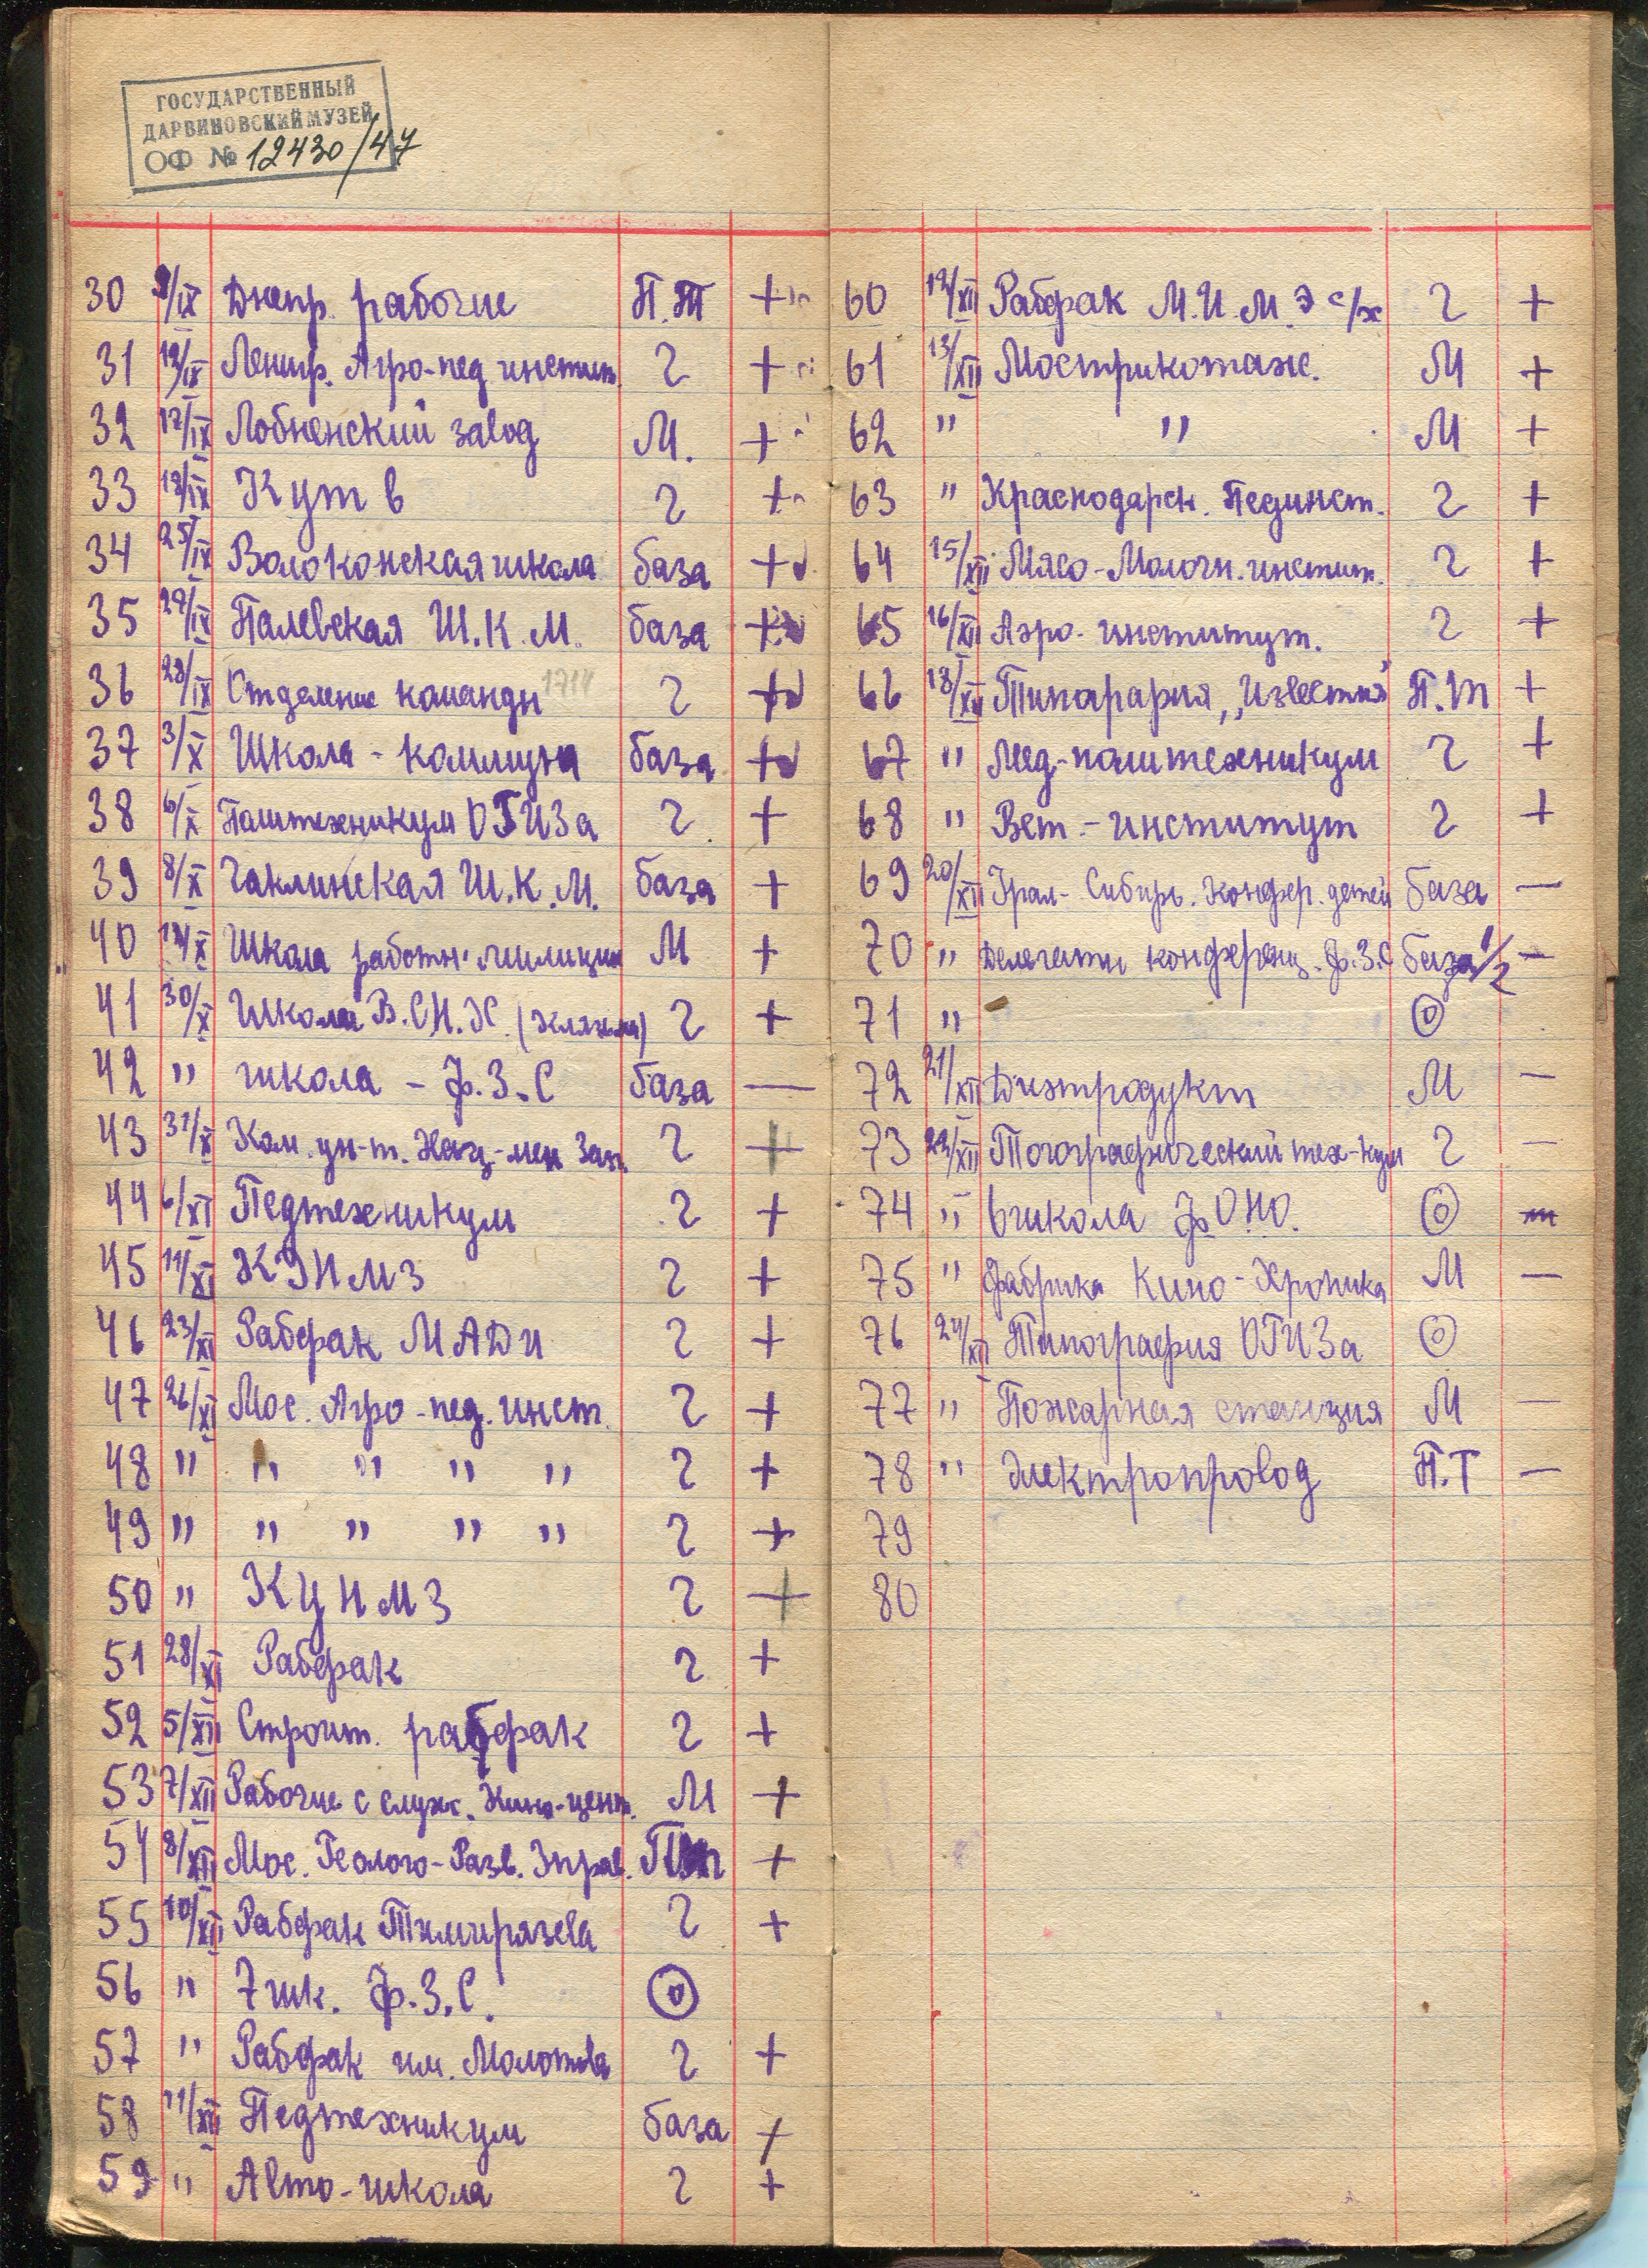 ГОСУДАРСТВЕННЫЙ
ДАРВИНОВСКИЙ МУЗЕЙ
ОФ № 12430/47
30 9/IX Днепр. рабочие П.Т +
31 12/IX Ленингр. Агро-пед. инстит. г +
32 17/IX Лобненский завод М. +
33 18/IX Кутв г +
34 25/IX Волоконская школа база +
35 27/IX Палевская Ш.К.М. база +
36 28/IX Отделение команды г +
37 3/X Школа - коммуна база +
38 6/X Политехникум ОГИЗа г +
39 8/X Чаклинская Ш.К.М. база +
40 14/X Школа работн. милиции М +
41 30/X Школа В.С.Н.Х. (Клязьма) г +
42 " школа - ф.З.С база —
43 31/X Ком. ун-т. Нац-мен Зап. г +
44 6/XI Педтехникум г +
45 11/XI КУНМЗ г +
46 23/XI Рабфак МАДИ г +
47 26/XI Мос. Агро-пед. инст. г +
48 " " " " " г +
49 " " " " " г +
50 " КУНМЗ г +
51 28/XI Рабфак г +
52 5/XII Строит. рабфак г +
53 7/XII Рабочие с служ. Кино-цент. М +
54 8/XII Мос. Геолого-Разв. Управ. +
55 10/XII Рабфак Тимирязева г +
56 " 7 шк. ф.З.С.
57 " Рабфак им. Молотова г +
58 11/XII Педтехникум база +
59 " Авто-школа г +
60 12/XII Рабфак М.И.М.Э с/х г +
61 13/XII Мострикотаж. М +
62 " " М +
63 " Краснодарск. Пединст. г +
64 15/XII Мясо-Молочн. инстит. г +
65 16/XII Аэро-институт. г +
66 18/XII Типография „Известия" П.Т +
67 " Мед-политехникум г +
68 " Вет.-институт г +
69 20/XII Урал-Сибирь. Конфер. детей база —
70 " Делегаты конференц. ф.З.С база 1/2 —
71 "
72 21/XII Диэтпродукт М —
73 22/XII Топографический тех-кум г —
74 " 6 школа ф.ОНО.
75 " Фабрика Кино-Хроника М —
76 24/XII Типография ОГИЗа
77 " Пожарная станция М —
78 " Электропровод П.Т —
79
80